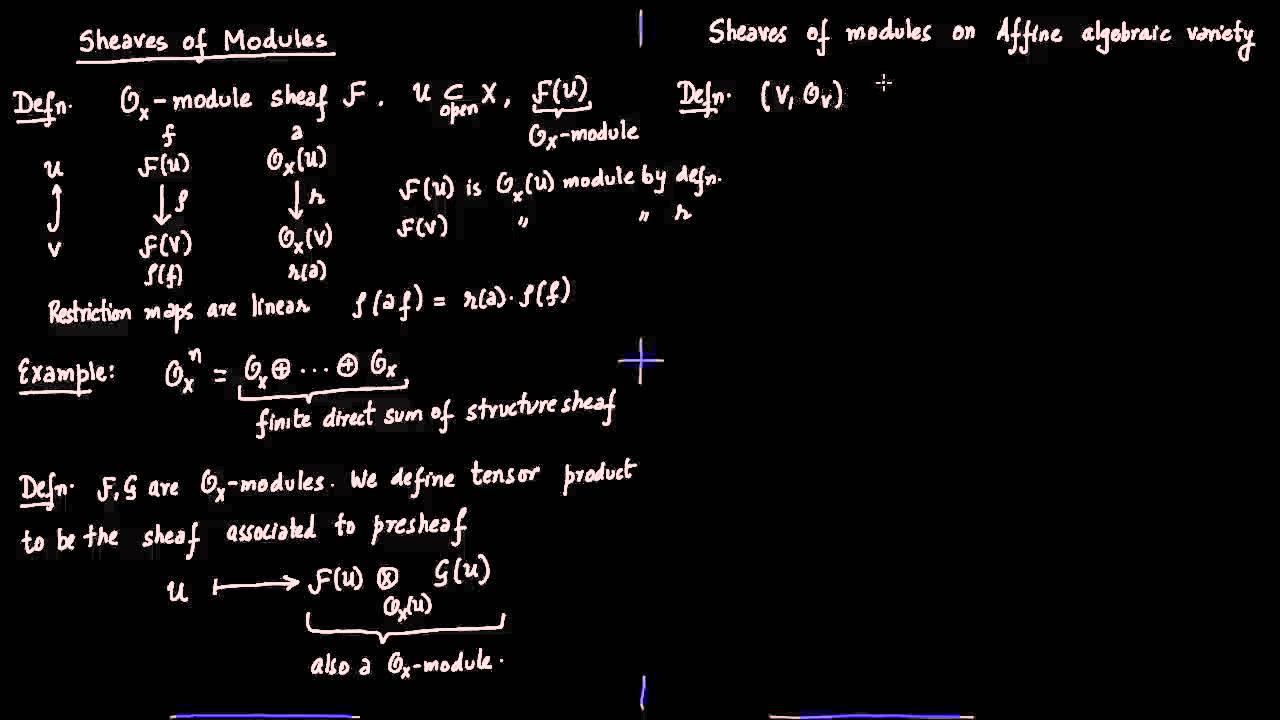 Sheaves of Modules
Defn. 𝒪x-module sheaf F. U ⊂ open X, F(U)
𝒪x-module
f a
U F(U) 𝒪x(U)
↓ρ ↓r F(U) is 𝒪x(U) module by defn.
F(V) " " r
V F(V) 𝒪x(V)
ρ(f) r(a)
Restriction maps are linear ρ(af) = r(a)·ρ(f)
Example: 𝒪x^n = 𝒪x ⊕ ... ⊕ 𝒪x
finite direct sum of structure sheaf
Defn. F, G are 𝒪x-modules. We define tensor product
to be the sheaf associated to presheaf
U ⟼ F(U) ⊗ G(U)
𝒪x(U)
also a 𝒪x-module.
Sheaves of modules on Affine algebraic variety
Defn. (V, 𝒪v)